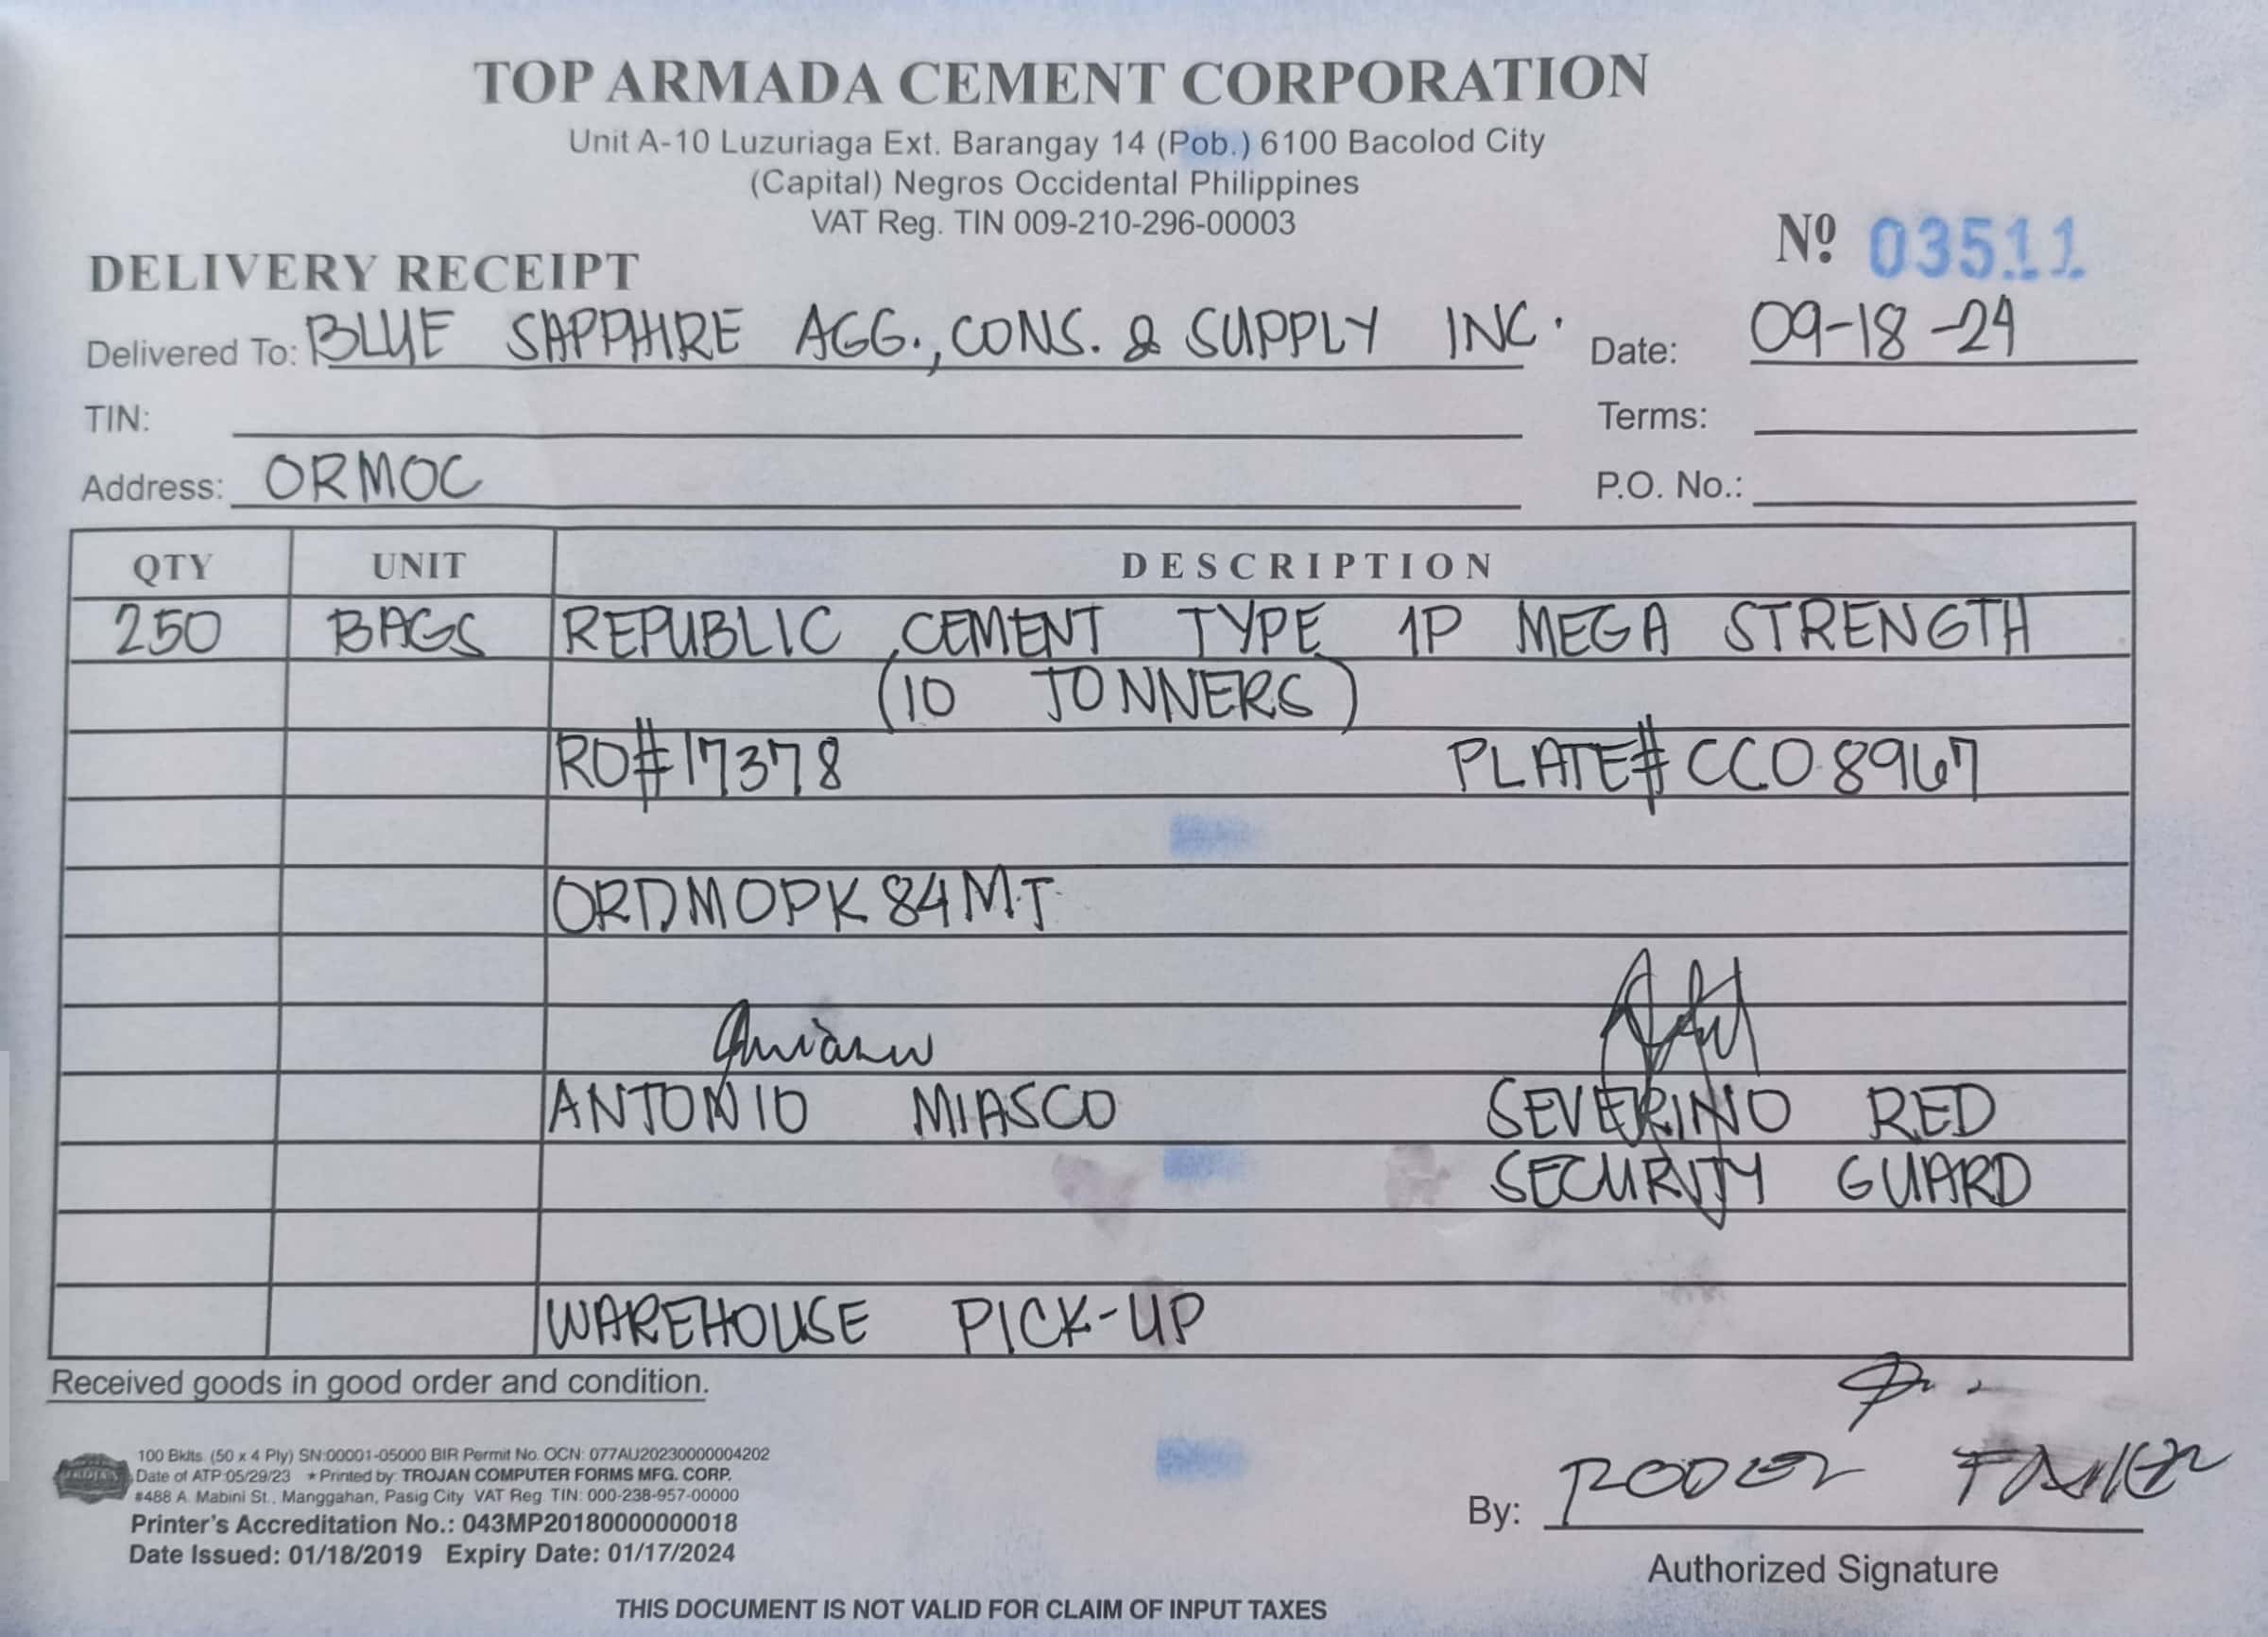 TOP ARMADA CEMENT CORPORATION
Unit A-10 Luzuriaga Ext. Barangay 14 (Pob.) 6100 Bacolod City
(Capital) Negros Occidental Philippines
VAT Reg. TIN 009-210-296-00003
Nº 03511
DELIVERY RECEIPT
Delivered To: BLUE SAPPHIRE AGG., CONS. & SUPPLY INC. Date: 09-18-24
TIN: Terms:
Address: ORMOC P.O. No.:
QTY UNIT DESCRIPTION
250 BAGS REPUBLIC CEMENT TYPE 1P MEGA STRENGTH
(10 TONNERS)
RO#17378 PLATE# CCO 8967
ORDMOPK84MT
ANTONIO MIASCO SEVERINO RED
SECURITY GUARD
WAREHOUSE PICK-UP
Received goods in good order and condition.
100 Bklts. (50 x 4 Ply) SN:00001-05000 BIR Permit No. OCN: 077AU20230000004202
Date of ATP:05/29/23 ★Printed by: TROJAN COMPUTER FORMS MFG. CORP.
#488 A. Mabini St., Manggahan, Pasig City VAT Reg. TIN: 000-238-957-00000
Printer's Accreditation No.: 043MP20180000000018
Date Issued: 01/18/2019 Expiry Date: 01/17/2024
By:
Authorized Signature
THIS DOCUMENT IS NOT VALID FOR CLAIM OF INPUT TAXES